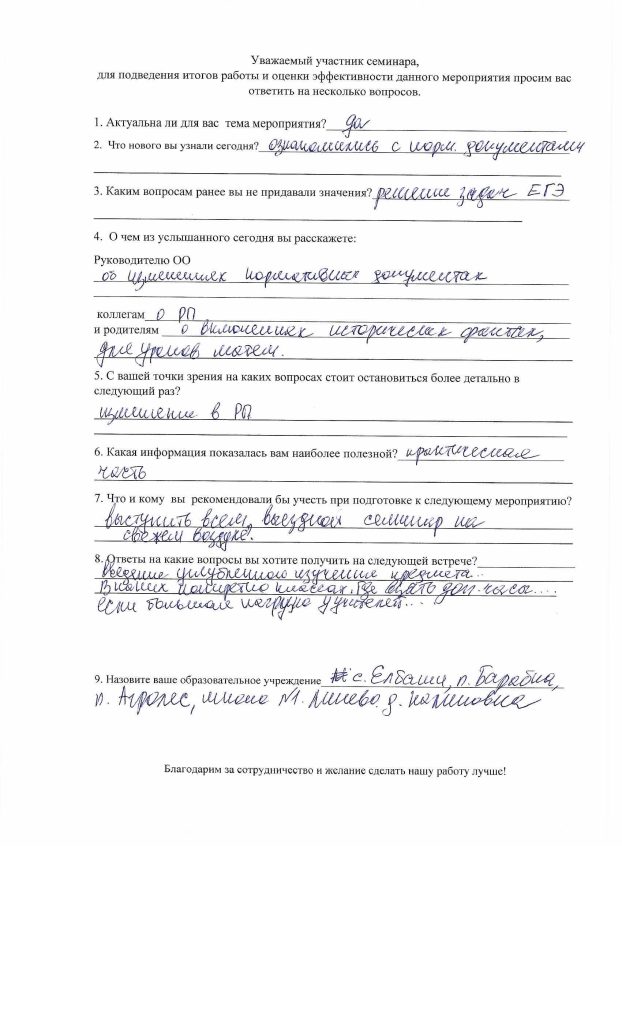 Уважаемый участник семинара,
для подведения итогов работы и оценки эффективности данного мероприятия просим вас
ответить на несколько вопросов.
1. Актуальна ли для вас тема мероприятия? да
2. Что нового вы узнали сегодня? ознакомились с норм. документами
3. Каким вопросам ранее вы не придавали значения? решение задач ЕГЭ
4. О чем из услышанного сегодня вы расскажете:
Руководителю ОО
об изменениях нормативных документах
коллегам о РП
и родителям о включениях исторических фактах,
для уроков матем.
5. С вашей точки зрения на каких вопросах стоит остановиться более детально в
следующий раз?
изменение в РП
6. Какая информация показалась вам наиболее полезной? практическая
часть
7. Что и кому вы рекомендовали бы учесть при подготовке к следующему мероприятию?
выступить всем, выездной семинар на
свежем воздухе.
8. Ответы на какие вопросы вы хотите получить на следующей встрече?
Введение углубленного изучение предмета...
В каких конкретно классах. Где взять доп. часа....
если большая нагрузка у учителей...
9. Назовите ваше образовательное учреждение с. Елбаши, п. Барабка,
п. Агролес, школа №1. Линево. д. Калиновка
Благодарим за сотрудничество и желание сделать нашу работу лучше!